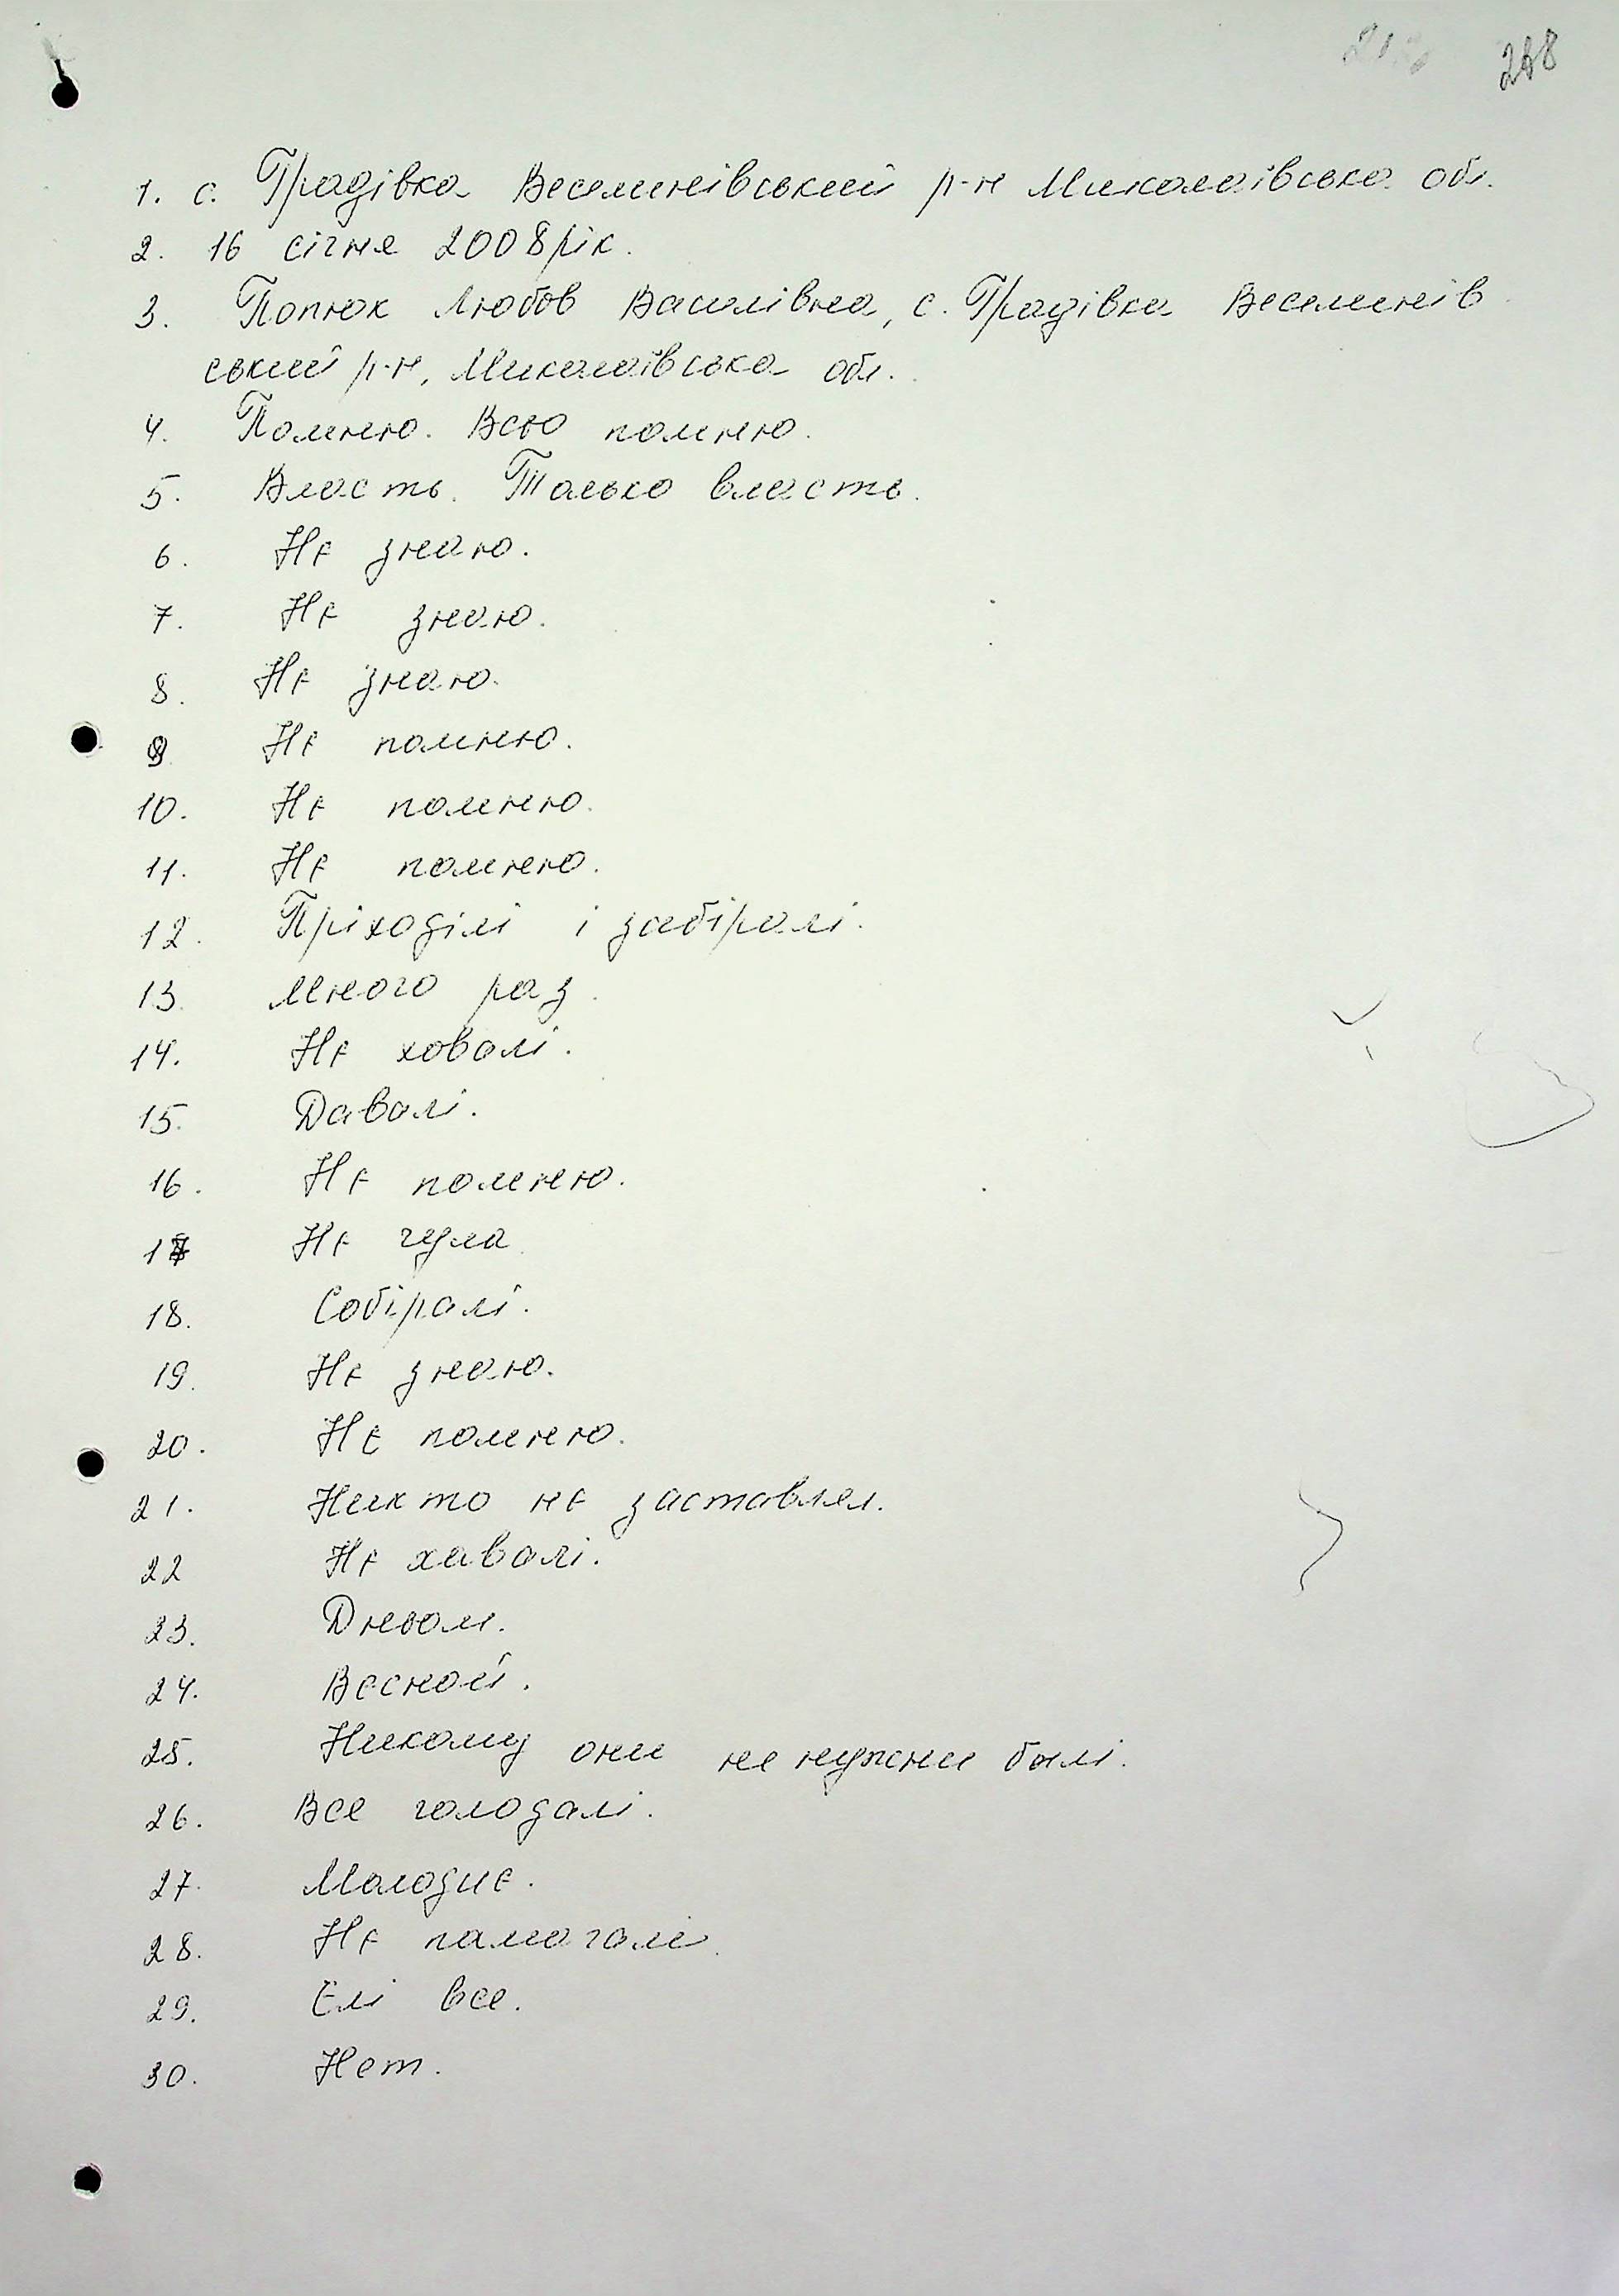 248
1. с. Градівка Веселинівський р-н Миколаївська обл.
2. 16 січня 2008 рік.
3. Попюк Любов Василівна, с. Градівка Веселинів
ський р-н, Миколаївська обл.
4. Помню. Всьо помню.
5. Власть. Только власть.
6. Нє знаю.
7. Нє знаю.
8. Нє знаю.
9 Нє помню.
10. Нє помню.
11. Нє помню.
12. Пріходілі і забіралі.
13. Много раз.
14. Нє ховалі.
15. Давалі.
16. Нє помню.
17 Нє чула
18. Собіралі.
19. Нє знаю.
20. Нє помню.
21. Никто нє заставлял.
22 Нє хавалі.
23. Дньом.
24. Вєсной.
25. Никому они не нужни былі.
26. Все голодалі.
27. Молодиє.
28. Нє памогали.
29. Єлі все.
30. Нет.